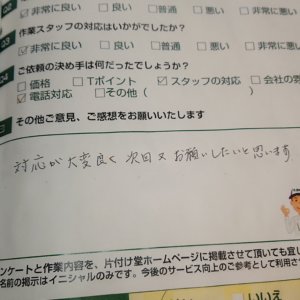 ☑非常に良い □良い □普通 □悪い □非常に悪
Q3 作業スタッフの対応はいかがでしたか？
☑非常に良い □良い □普通 □悪い □非常に悪い
Q4 ご依頼の決め手は何だったでしょうか？
□価格 □Tポイント ☑スタッフの対応 □会社の雰
☑電話対応 □その他（
その他ご意見、ご感想をお願いいたします
対応が大変良く 次回又お願いしたいと思います
ンケートと作業内容を、片付け堂ホームページに掲載させて頂いても宜し
名前の掲示はイニシャルのみです。今後のサービス向上のご参考として利用さ
いいえ